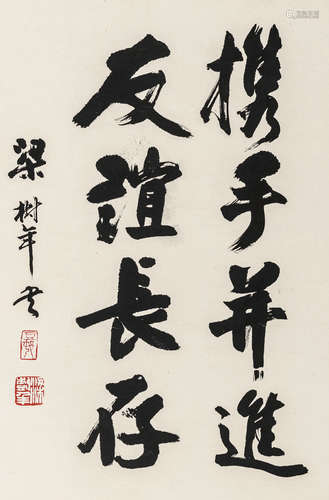 携手并進
反誼長存
梁樹年书